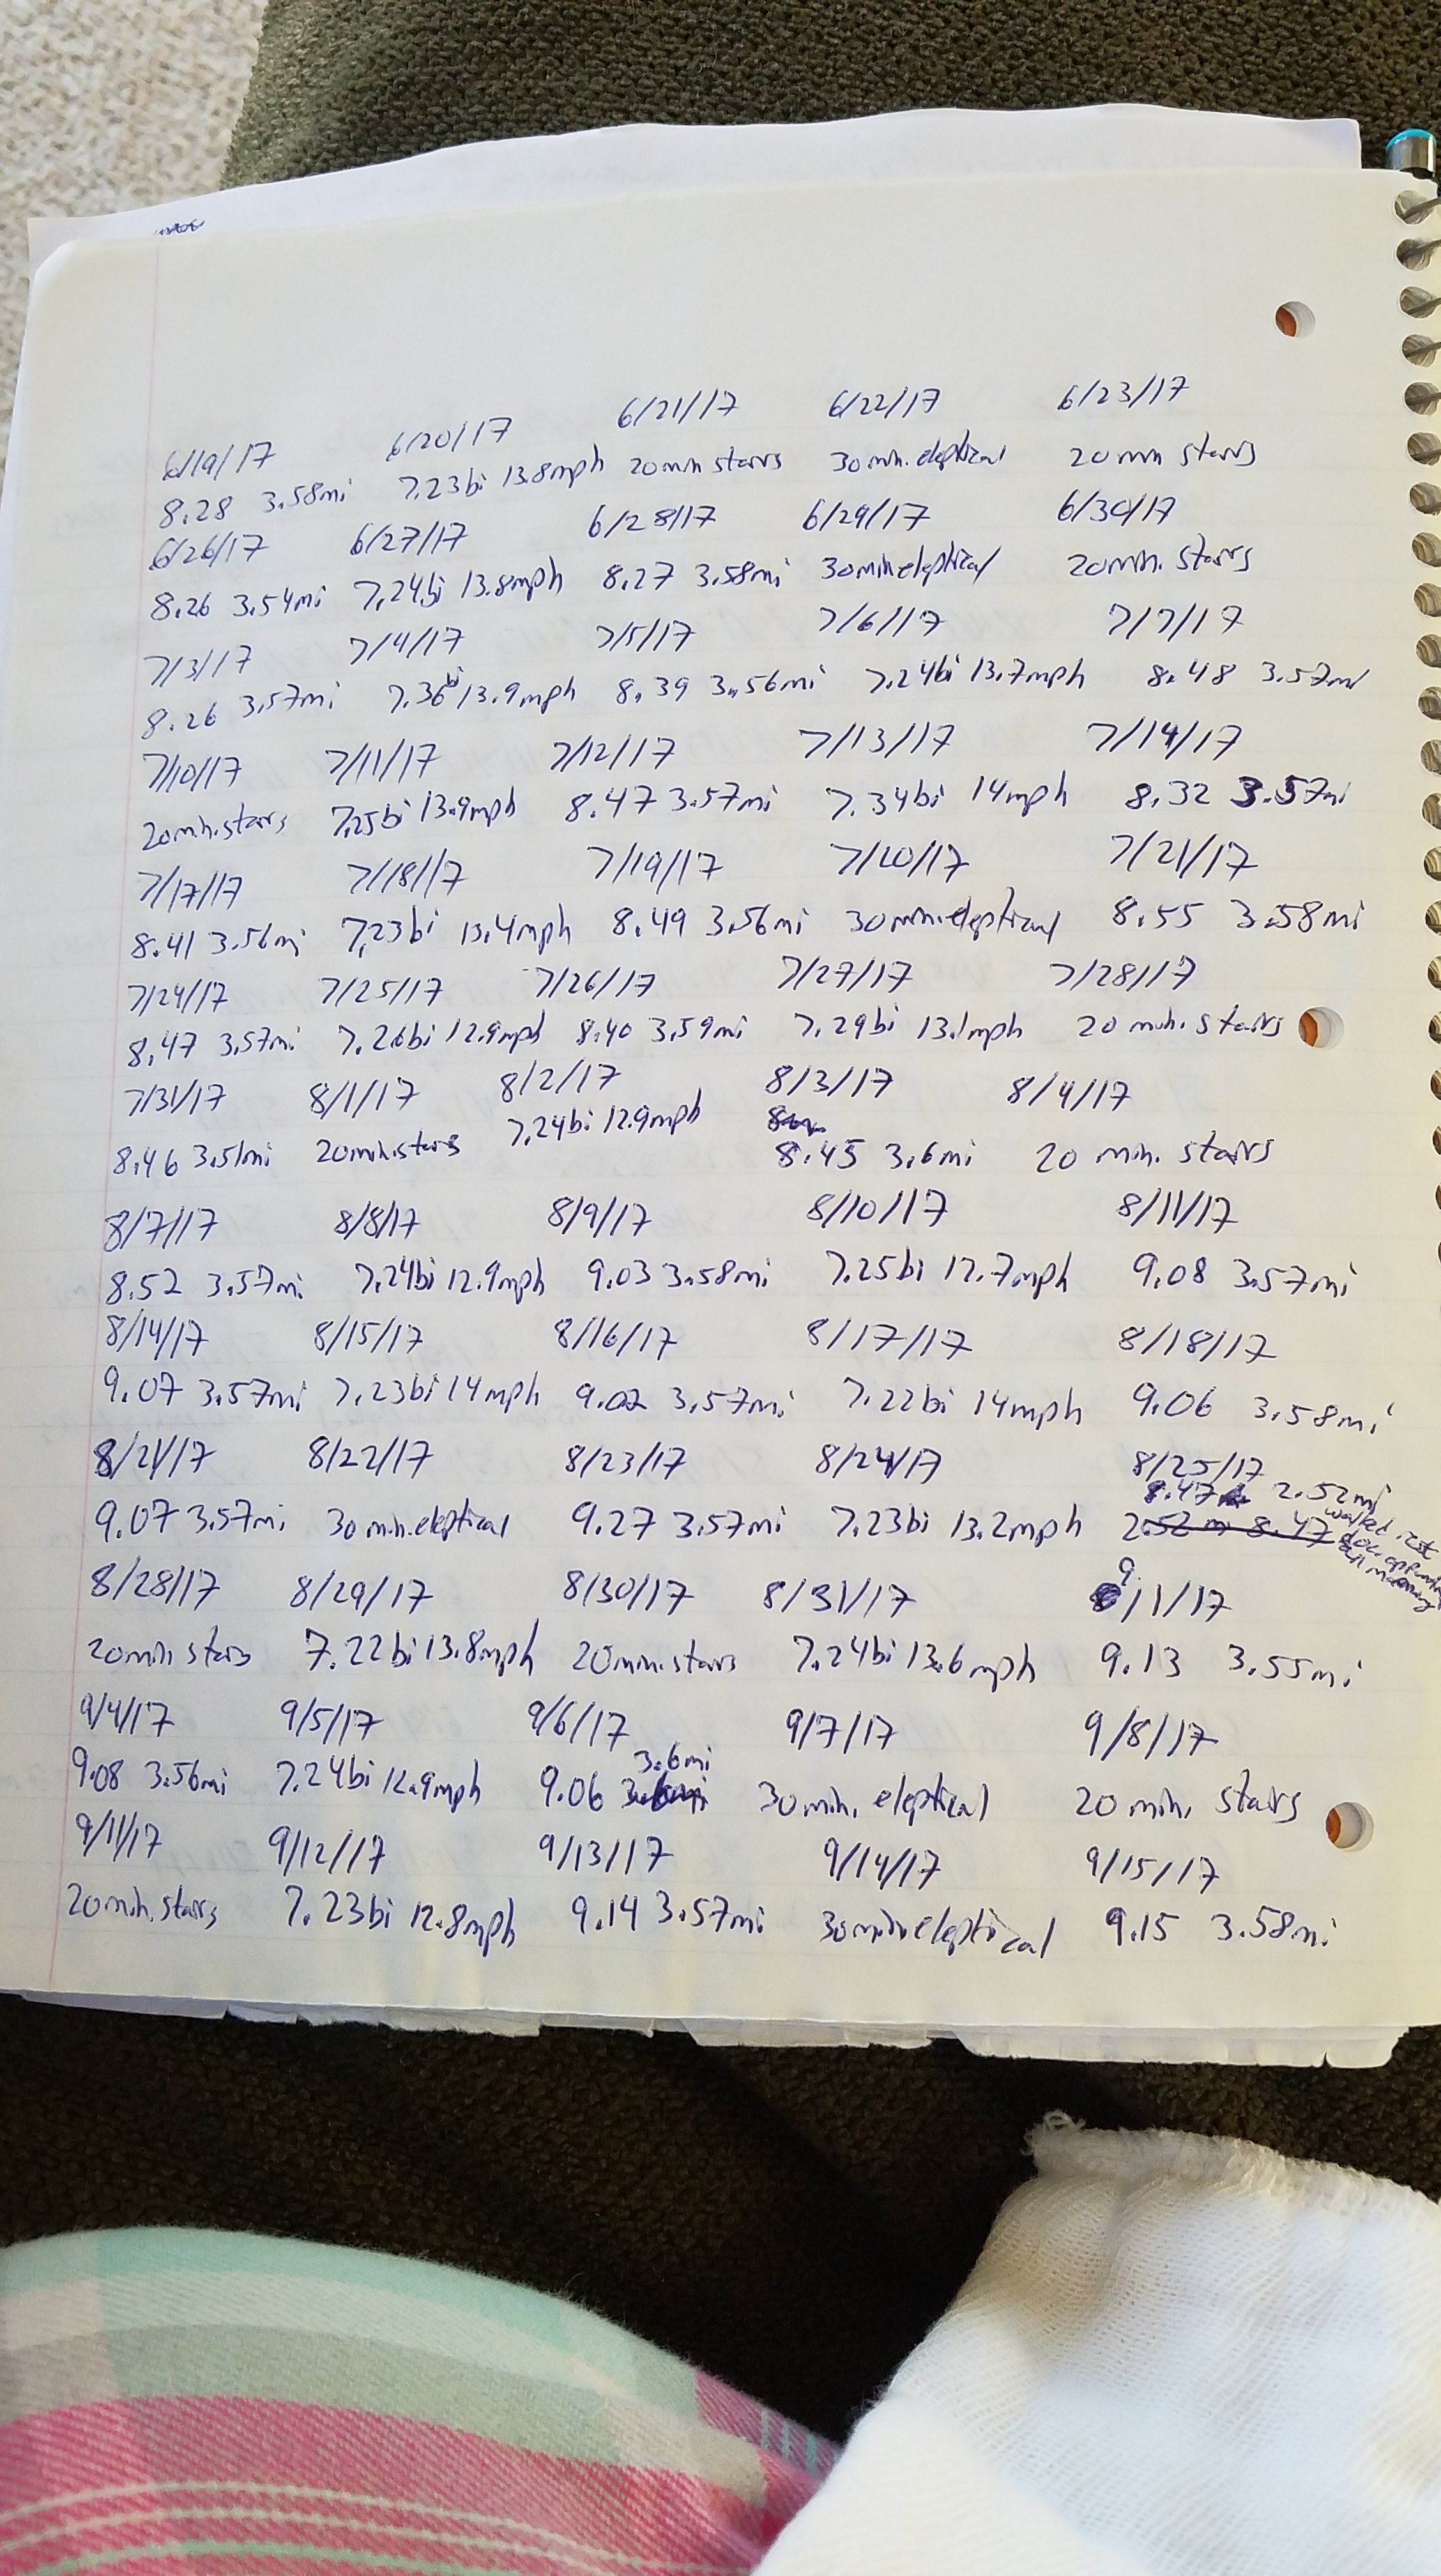 6/19/17 6/20/17 6/21/17 6/22/17 6/23/17
8.28 3.58mi 7.23bi 13.8mph 20min stairs 30min. eleptical 20min stairs
6/26/17 6/27/17 6/28/17 6/29/17 6/30/17
8.26 3.54mi 7.24bi 13.8mph 8.27 3.58mi 30min eleptical 20min. stairs
7/3/17 7/4/17 7/5/17 7/6/17 7/7/17
8.26 3.57mi 7.36bi 13.9mph 8.39 3.56mi 7.24bi 13.7mph 8.48 3.57mi
7/10/17 7/11/17 7/12/17 7/13/17 7/14/17
20min. stairs 7.25bi 13.9mph 8.47 3.57mi 7.34bi 14mph 8.32 3.57mi
7/17/17 7/18/17 7/19/17 7/20/17 7/21/17
8.41 3.56mi 7.23bi 13.4mph 8.49 3.56mi 30min. eleptical 8.55 3.58mi
7/24/17 7/25/17 7/26/17 7/27/17 7/28/17
8.47 3.57mi 7.26bi 12.9mph 8.40 3.59mi 7.29bi 13.1mph 20 min. stairs
7/31/17 8/1/17 8/2/17 8/3/17 8/4/17
8.46 3.51mi 20min. stairs 7.24bi 12.9mph 8.45 3.6mi 20 min. stairs
8/7/17 8/8/17 8/9/17 8/10/17 8/11/17
8.52 3.57mi 7.24bi 12.9mph 9.03 3.58mi 7.25bi 12.7mph 9.08 3.57mi
8/14/17 8/15/17 8/16/17 8/17/17 8/18/17
9.07 3.57mi 7.23bi 14mph 9.02 3.57mi 7.22bi 14mph 9.06 3.58mi
8/21/17 8/22/17 8/23/17 8/24/17 8/25/17
8.47 2.52mi
9.07 3.57mi 30min. eleptical 9.27 3.57mi 7.23bi 13.2mph 2.52 mi 8.47 walked rest
8/28/17 8/29/17 8/30/17 8/31/17 9/1/17
20min stairs 7.22bi 13.8mph 20min. stairs 7.24bi 13.6mph 9.13 3.55mi
9/4/17 9/5/17 9/6/17 9/7/17 9/8/17
9.08 3.56mi 7.24bi 12.9mph 9.06 3.6mi 30min. eleptical 20 min. stairs
9/11/17 9/12/17 9/13/17 9/14/17 9/15/17
20min. stairs 7.23bi 12.8mph 9.14 3.57mi 30min eleptical 9.15 3.58mi